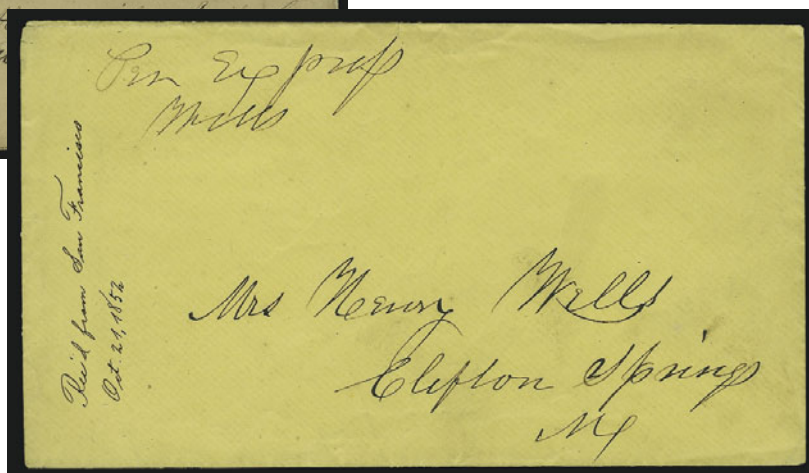 Per Express
Wells
Rec'd from San Francisco
Oct 21, 1852
Mrs Henry Wells
Clifton Springs
NY